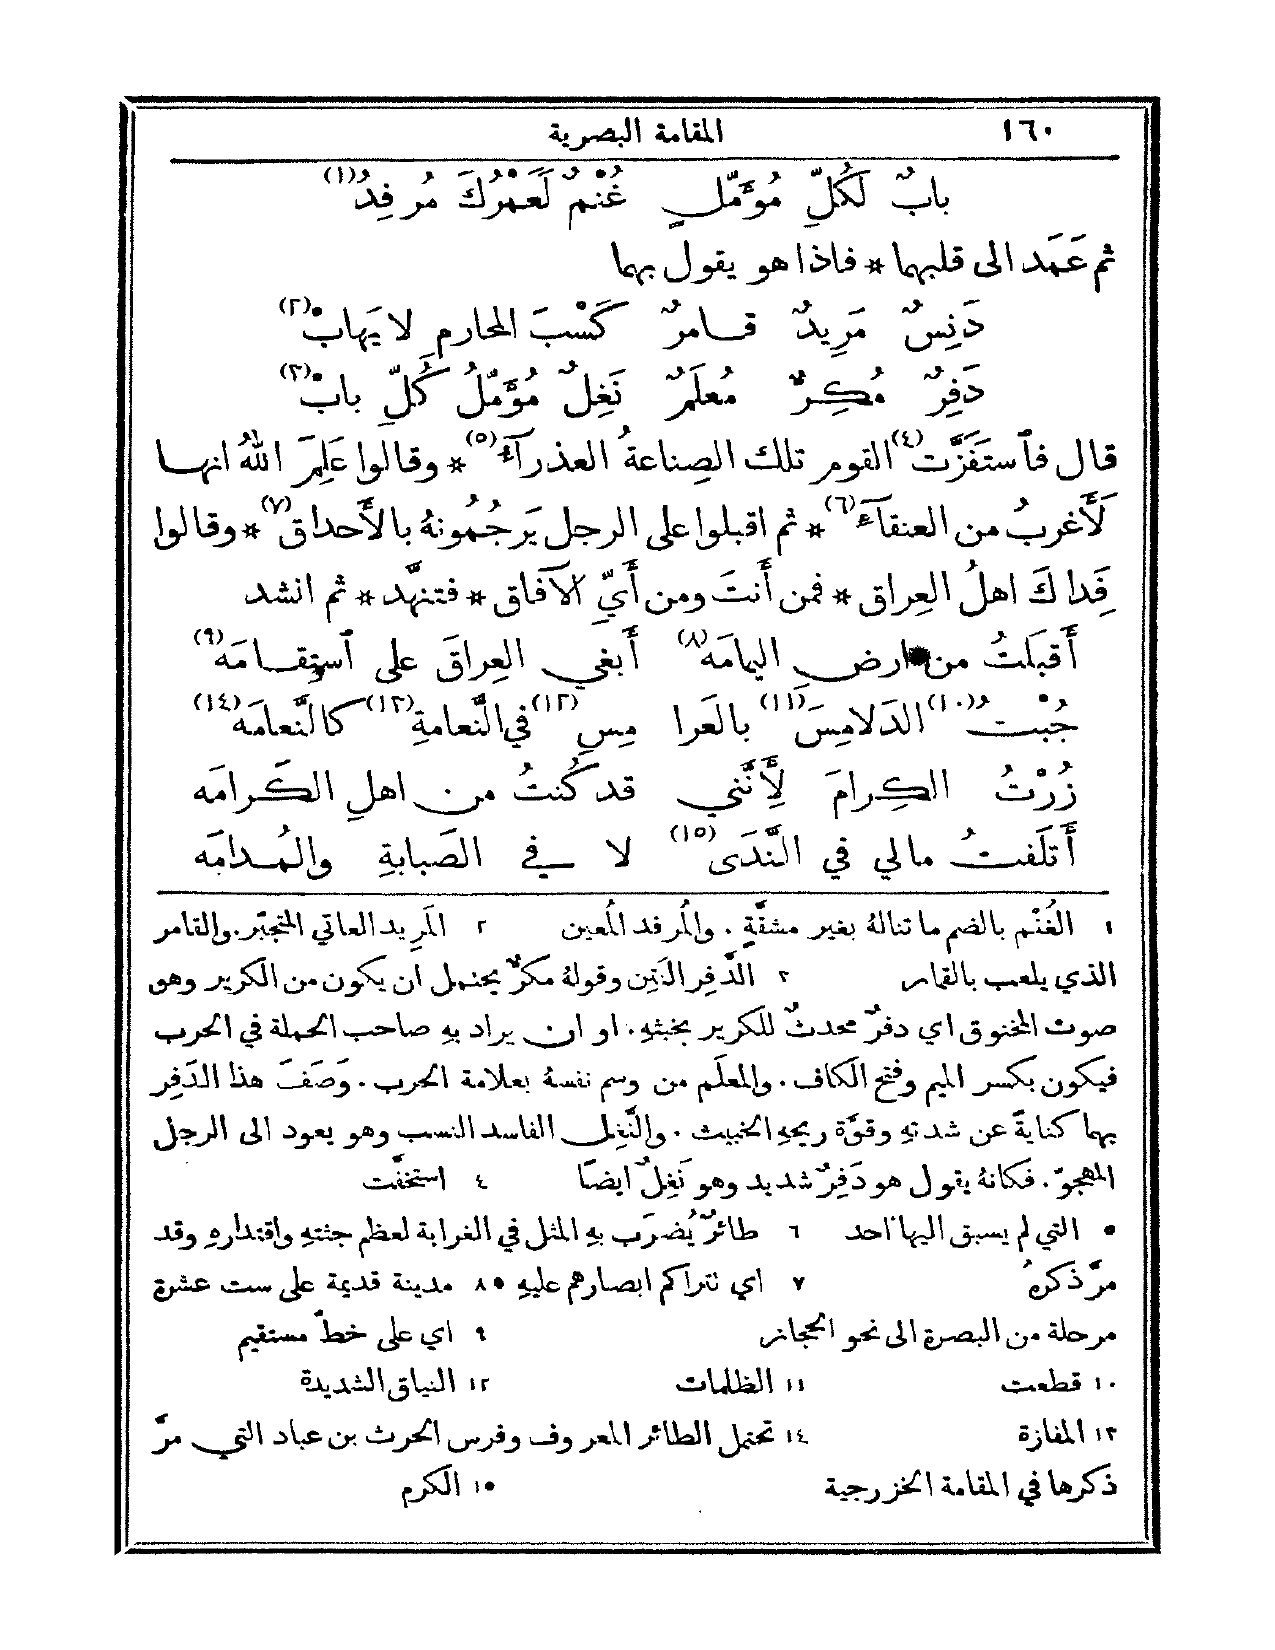 ١٦٠ المقامة البصرية
بابٌ لَكُلِّ مُؤَمَّلٍ غُنْمٌ لَعَمْرُكَ مُرفِدُ (١)
ثم عَمَد الى قلبهما * فاذا هو يقول بهما
دَنِسٌ مَرِيدٌ قامرٌ كَسْبَ المحارمِ لا يَهابْ (٢)
دَفِرٌ مُكِرٌّ مُعلَمٌ نَغِلٌ مُؤَمِّلُ كُلِّ بابْ (٣)
قال فٱستَفَزَّت (٤) القوم تلك الصِناعةُ العذرآءُ (٥) * وقالوا عَلِمَ اللهُ انها
لَأَغربُ من العنقآءِ (٦) * ثم اقبلوا على الرجل يَرجُمُونهُ بالأَحداق (٧) * وقالوا
فِداكَ اهلُ العِراق * فمن أَنتَ ومن أَيِّ الآفاق * فتنهَّد * ثم انشد
أَقبَلتُ من ارضِ اليمامَه (٨) أَبغي العِراقَ على ٱستِقامَه (٩)
جُبْتُ (١٠) الدَلامِسَ (١١) بالعَرا مِسِ (١٢) في النَّعامةِ (١٣) كالنَّعامَه (١٤)
زُرْتُ الكِرامَ لِأَنَّني قد كُنتُ من اهلِ الكَرامَه
أَتلَفتُ مالي في النَّدَى (١٥) لا في الصَبابةِ والمُدامَه
١ الغُنْم بالضم ما تنالهُ بغير مشقَّةٍ. والمُرفد المُعين ٢ المَرِيد العاتي المتجبّر. والقامر
الذي يلعب بالقمار ٣ الدَّفِر النَتِن وقولهُ مكرٌّ يحتمل ان يكون من الكرير وهو
صوت المخنوق اي دفرٌ محدثٌ للكرير بخبثهِ. او ان يراد بهِ صاحب الحملة في الحرب
فيكون بكسر الميم وفتح الكاف. والمعلَم من وسم نفسهُ بعلامة الحرب. وَصَفَ هذا الدَفِر
بهما كنايةً عن شدتهِ وقوَّة ريحهِ الخبيث. والنَّغِل الفاسد النسب وهو يعود الى الرجل
المهجوّ. فكانهُ يقول هو دَفِرٌ شديد وهو نَغِلٌ ايضًا ٤ استخفَّت
٥ التي لم يسبق اليها احد ٦ طائرٌ يُضرَب بهِ المثل في الغرابة لعظم جثتهِ واقتدارهِ وقد
مرَّ ذكرهُ ٧ اي تتراكم ابصارهم عليهِ ٨ مدينة قديمة على ست عشرة
مرحلة من البصرة الى نحو الحجاز ٩ اي على خطّ مستقيم
١٠ قطعت ١١ الظلمات ١٢ النياق الشديدة
١٣ المفازة ١٤ تحتمل الطائر المعروف وفرس الحرث بن عباد التي مرَّ
ذكرها في المقامة الخزرجية ١٥ الكرم